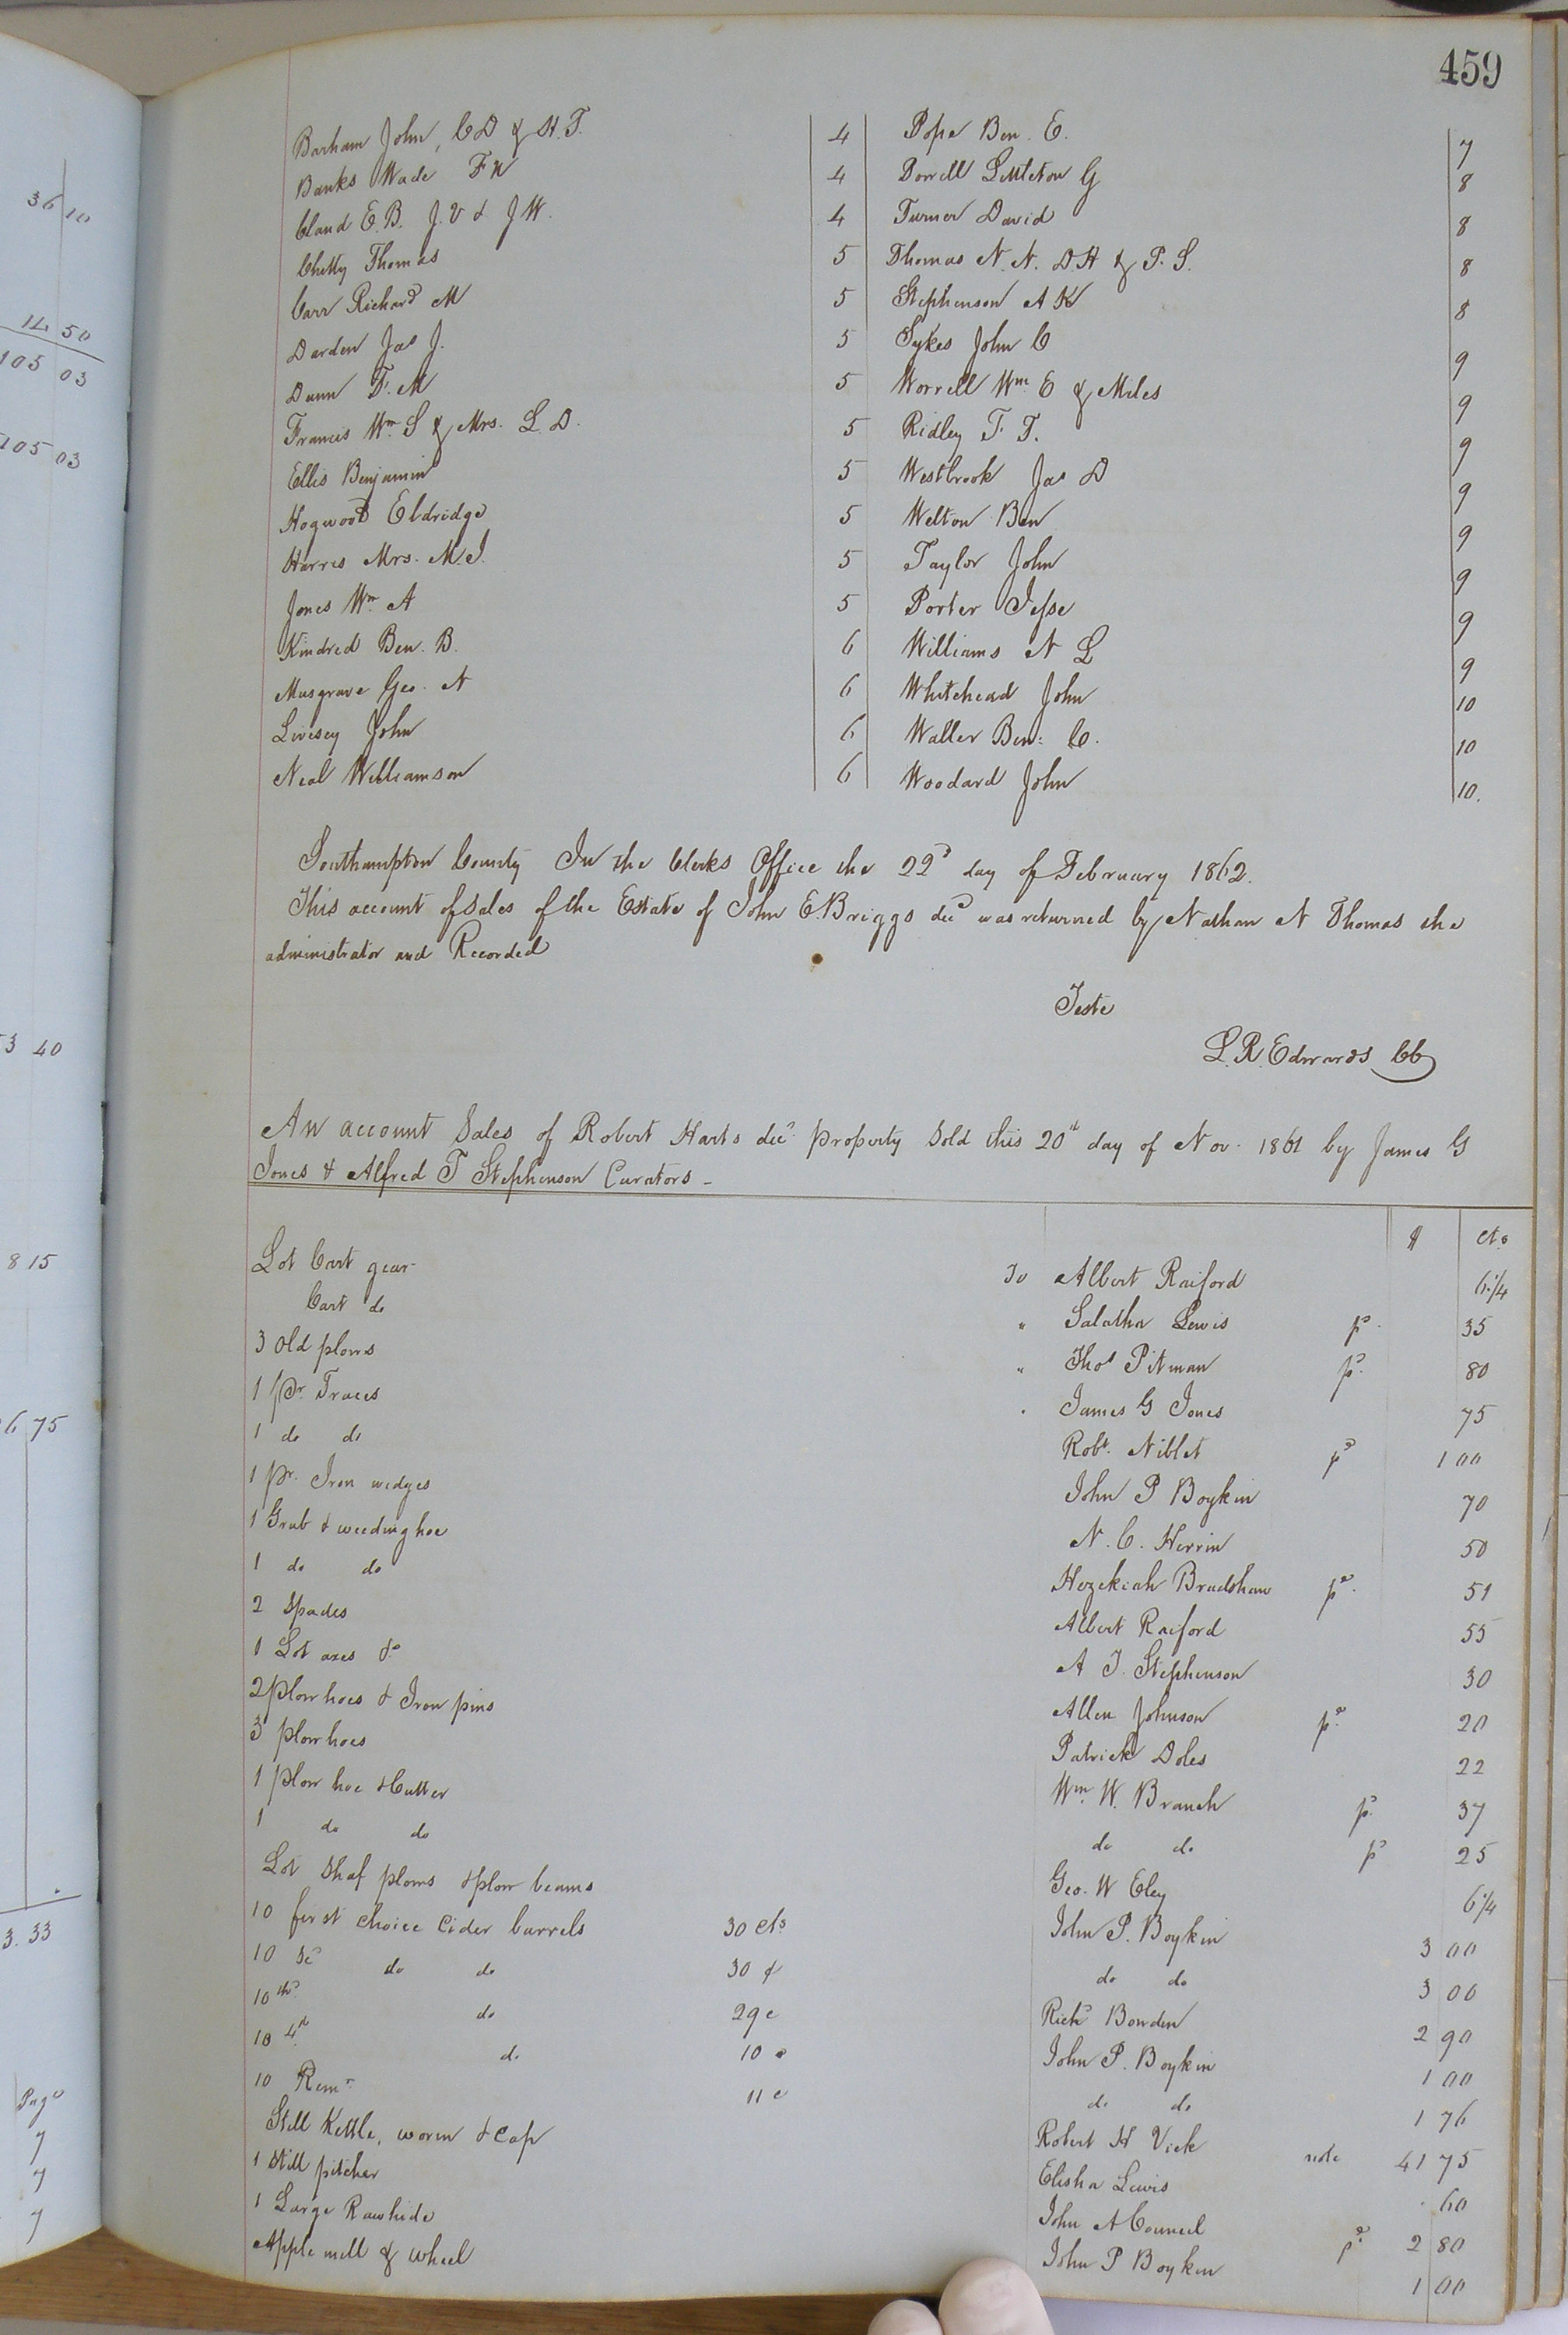 459
36 10
14 50
105 03
105 03
3 40
8 15
6 75
3.33
Page
7
7
7
Barham John, C D & H. T. 4 Pope Ben. E. 7
Banks Wade F N 4 Dorrell Littleton G 8
Cland E. B. J. V & J W. 4 Turner David 8
Chitty Thomas 5 Thomas N. N. D H & P. S. 8
Carr Richard M 5 Stephenson A K 8
Darden Jas J. 5 Sykes John C 9
Dunn F. M 5 Worrell Wm E & Miles 9
Francis Wm S & Mrs. L. D. 5 Ridley F. T. 9
Ellis Benjamin 5 Westbrook Jas D 9
Hogwood Eldridge 5 Welton Ben 9
Harris Mrs. M. J. 5 Taylor John 9
Jones Wm A 5 Porter Jesse 9
Kindred Ben. B. 6 Williams N L 9
Musgrave Geo. N 6 Whitehead John 10
Livesey John 6 Waller Ben: C. 10
Neal Williamson 6 Woodard John 10.
Southampton County In the Clerks Office the 22d day of February 1862.
This account of sales of the Estate of John E. Briggs decd was returned by Nathan N Thomas the
administrator and Recorded
Teste
L. R. Edwards CC
An account Sales of Robert Harts decd property Sold this 20th day of Nov. 1861 by James G
Jones & Alfred T Stephenson Curators -
$ cts
Lot Cart gear To Albert Raiford 6 1/4
Cart do " Salatha Lewis pd. 35
3 Old plows " Thos Pitman pd. 80
1 pr. Traces James G Jones 75
1 do do Robt. Niblet pd 1 00
1 pr. Iron wedges John P Boykin 70
1 Grub & weeding hoe N. C. Herrin 50
1 do do Hezekiah Bradshaw pd. 51
2 Spades Albert Raiford 55
1 Lot axes &c A T. Stephenson 30
2 plow hoes & Iron pins Allen Johnson pd. 20
3 plow hoes Patrick Doles 22
1 plow hoe & Cutter Wm. W. Branch pd. 37
1 do do do do pd 25
Lot Shaf plows & plow beams Geo. W Eley 6 1/4
10 first choice Cider barrels 30 cts John P. Boykin 3 00
10 Sc do do 30 ¢ do do 3 00
10 thd do 29 c Richd Bowden 2 90
10 4th do 10 c John P. Boykin 1 00
10 Remr. 11 c do do 1 76
Still Kettle, worm & Cap Robert H Vick note 41 75
1 Still pitcher Elisha Lewis 60
1 Large Rawhide John A Council pd. 2 80
Apple mill & wheel John P Boykin 1 00